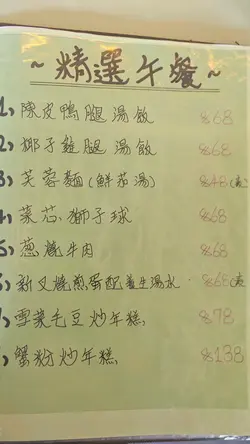 ~精選午餐~
1、陳皮鴨腿湯飯 $68
2、椰子雞腿湯飯 $68
3、芙蓉麵(鮮茄湯) $48(素)
4、菜芯獅子球 $68
5、蔥燒牛肉 $68
6、新叉燒煎蛋配養生湯水 $68(素
7、雪菜毛豆炒年糕 $78
8、蟹粉炒年糕 $138